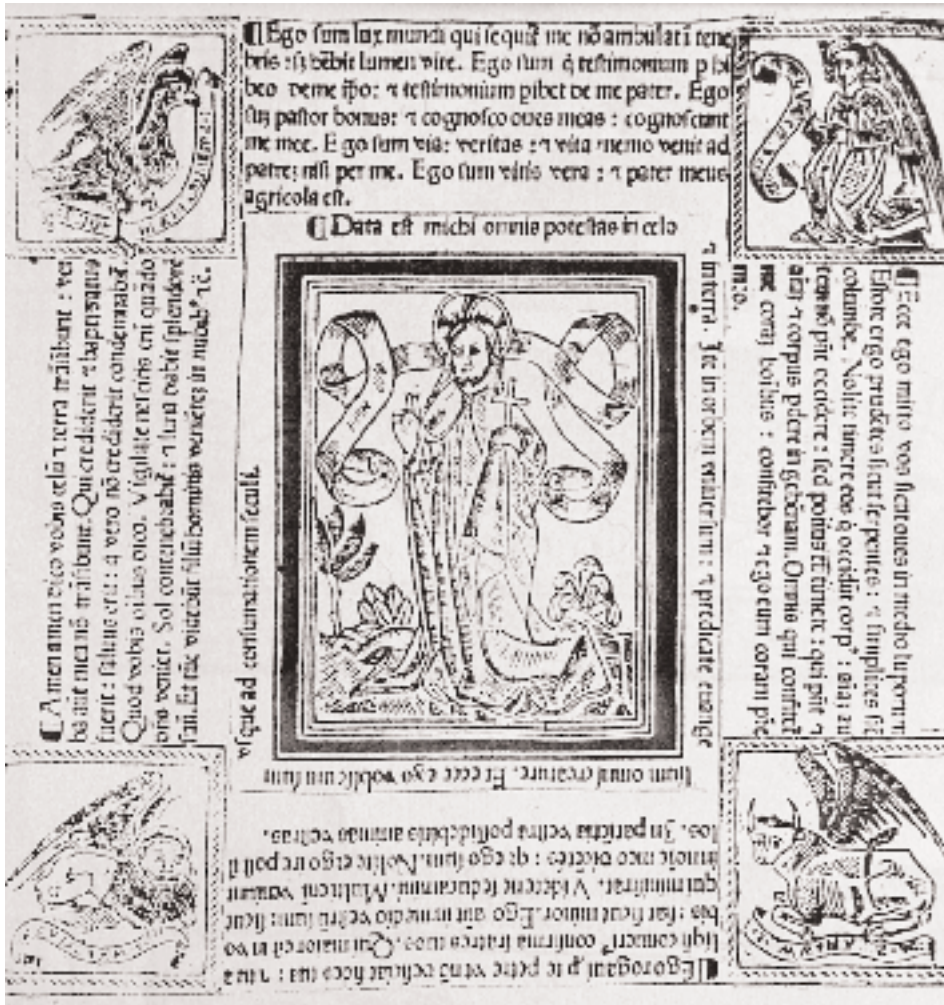 Ego sum lux mundi qui sequit̃ me nõ ambulat ĩ tene
bris : sʒ hẽbit lumen vite. Ego sum q̃ testimonium phi
beo de me ip̃o: ⁊ testimonium phibet de me pater. Ego
suʒ pastor bonus: ⁊ cognosco oues meas : cognoscunt
me mee. Ego sum via: veritas : ⁊ vita nemo venit ad
patrẽ: nisi per me. Ego sum vitis vera : ⁊ pater meus
agricola est.
Data est michi omnis potestas in celo
⁊ in terra. Ite in orbem vniuersum : ⁊ predicate euange
lium omni creature. Et ecce ego vobiscum sum
vsque ad consumationem seculi.
Ecce ego mitto vos sicut oues in medio luporum
Estote ergo prudẽtes sicut serpentes : ⁊ simplices sic̃
columbe. Nolite timere eos q̃ occidũt corp⁹ : aĩaʒ aũ
nõ pñt occidere : sed potius
aĩaʒ ⁊ corpus pdere ĩ gehẽnam. Omnis qui
me coraʒ hoĩbus : confitebor ⁊ ego eum coram pr̃e
meo.
Ego rogaui p te petre vt nõ deficiat fides tua : ⁊ tu
confirma fratres tuos. Qui maior est in vo
bis : fiat sicut minor. Ego aũt in medio vestrũ sum: sicut
qui ministrat. Videte ne seducamini. Multi eñi venient
in noĩe meo dicẽtes : qꝛ ego sum. Nolite ergo ire post il
los. In patiẽtia vestra possidebitis animas vestras.
Amen amen dico vobis celũ ⁊ terra trãsibunt : ver
ba aũt mea nõ trãsibunt. Qui crediderit ⁊ baptisatus
fuerit : saluus erit : q̃ vero nõ crediderit condemnabit̃
Quod vobis oĩbus dico. Vigilate nescitis eñi quãdo
dñs veniet. Sol contenebrabit̃ : ⁊ luna dabit splendorẽ
suũ. Et tũc videbũt filiũ hominis venientẽ in nubib⁹ ⁊c̃.